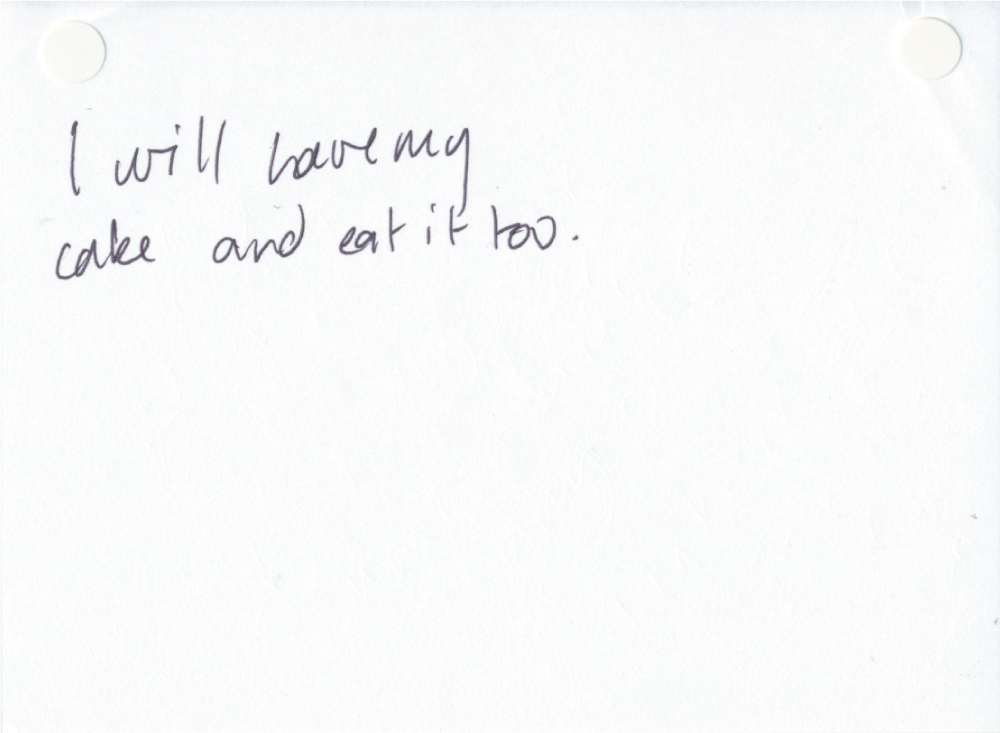 I will have my
cake and eat it too.